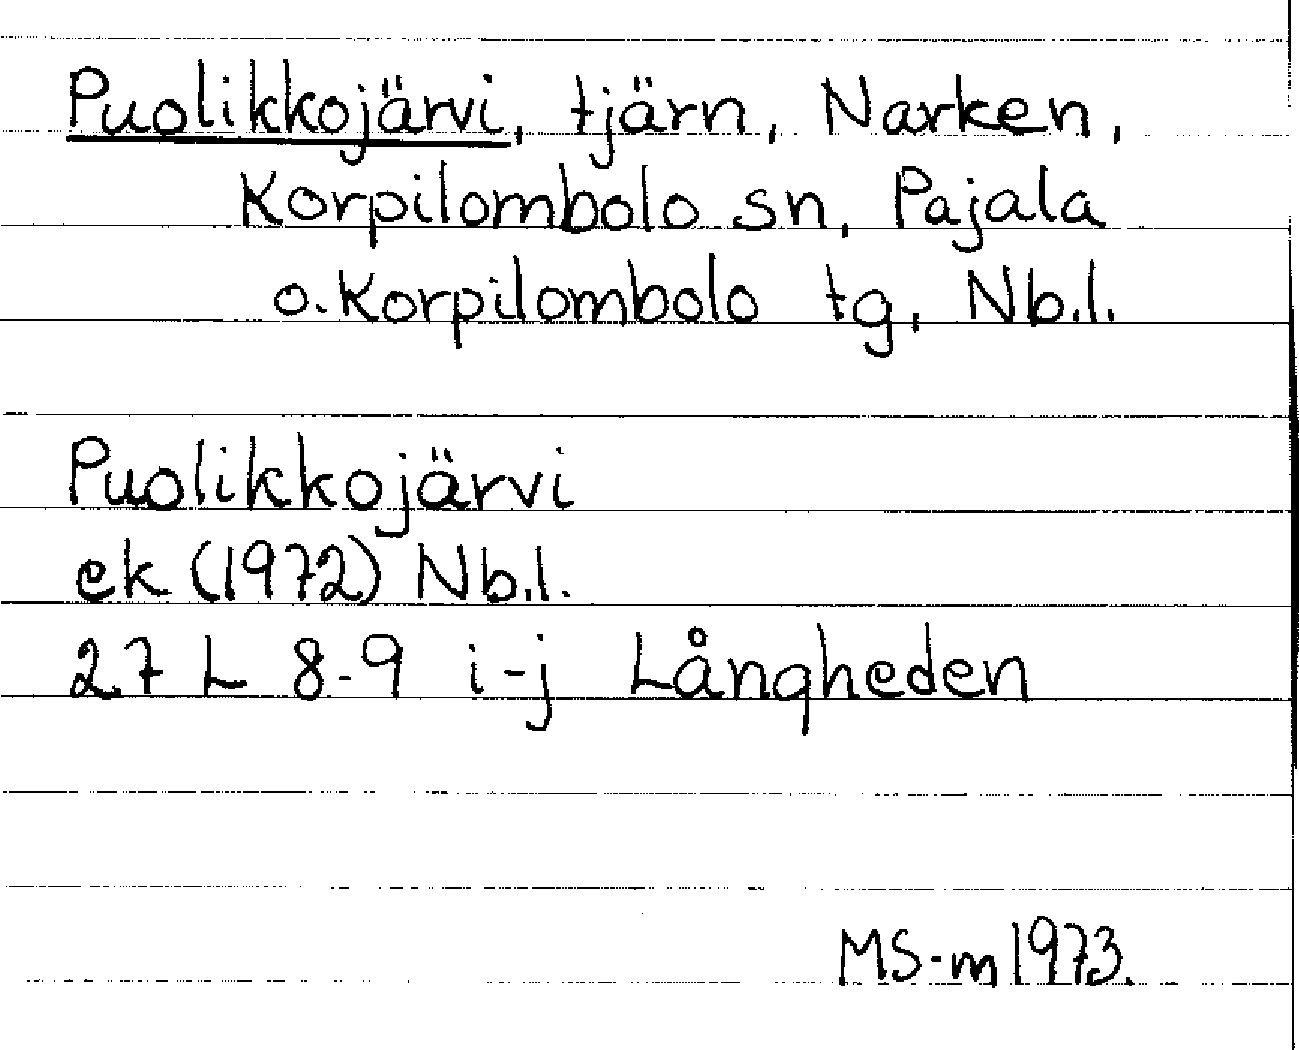 Puolikkojärvi, tjärn, Narken,
Korpilombolo sn, Pajala
o. Korpilombolo tg, Nb.l.
Puolikkojärvi
ek (1972) Nb.l.
27 L 8-9 i-j Långheden
MS-m 1973.